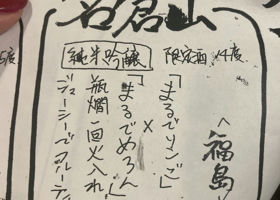 名倉山
<福島>
限定酒 14度
純米吟醸
「まるでリンゴ」
×
「まるでめろん」
瓶燗一回火入れ
ジューシーでフルーティ
5度